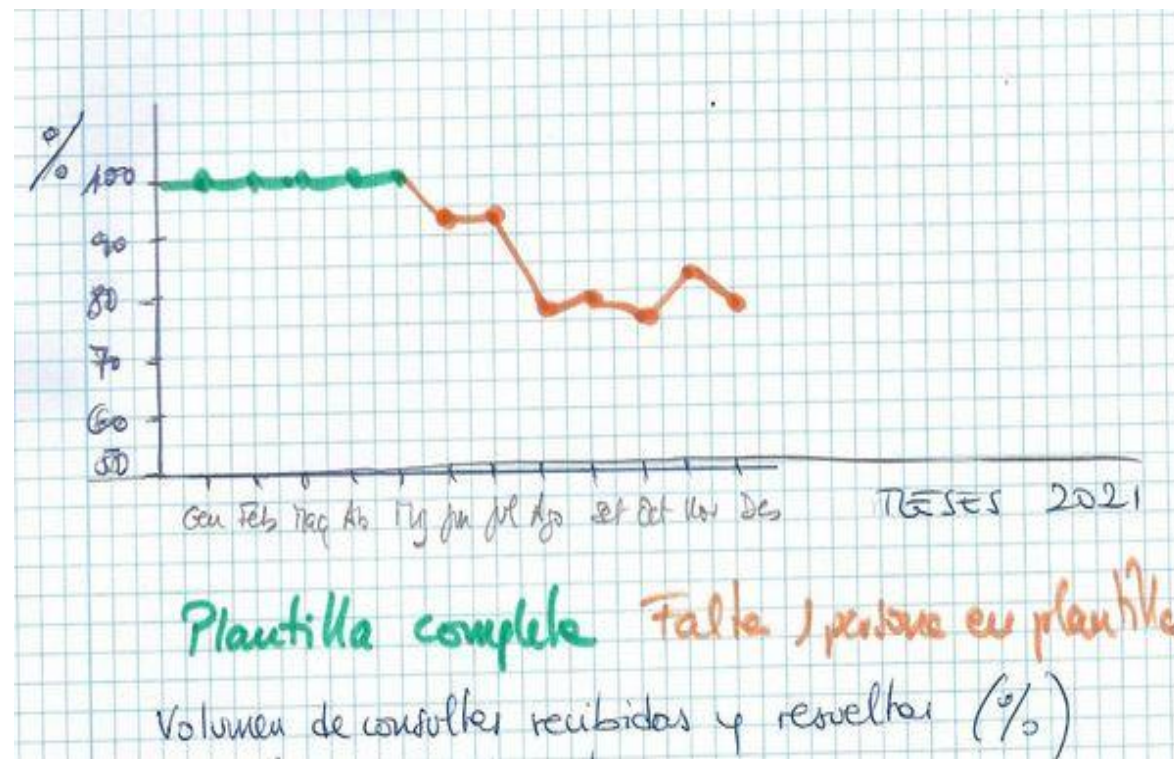 %
100
90
80
70
60
50
Gen Feb Maç Ab Mg Jun Jul Ago Set Oct Nov Des
MESES 2021
Plantilla completa Falta 1 persona en plantilla
Volumen de consultas recibidas y resueltas (%)